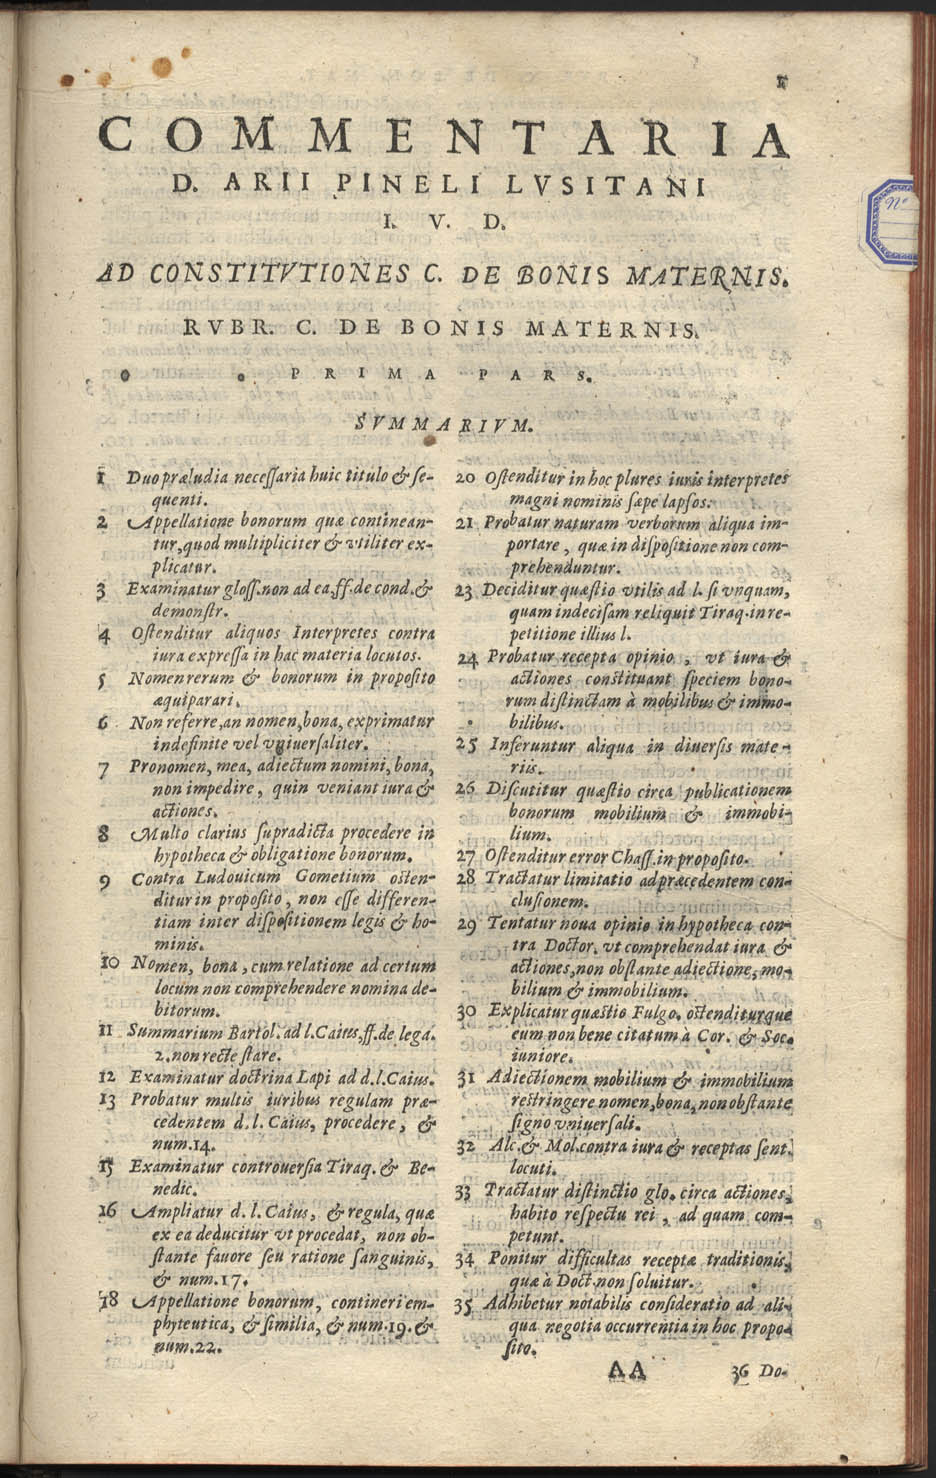 1
COMMENTARIA
D. ARII PINELI LVSITANI
I. V. D.
AD CONSTITVTIONES C. DE BONIS MATERNIS.
RVBR. C. DE BONIS MATERNIS.
PRIMA PARS.
SVMMARIVM.
1 Duo præludia neceſſaria huic titulo & ſe-
quenti.
2 Appellatione bonorum quæ continean-
tur, quod multipliciter & vtiliter ex-
plicatur.
3 Examinatur gloſſ. non ad ea, ff. de cond. &
demonſtr.
4 Oſtenditur aliquos Interpretes contra
iura expreſſa in hac materia locutos.
5 Nomen rerum & bonorum in propoſito
æquiparari.
6 Non referre, an nomen, bona, exprimatur
indefinite vel vniuerſaliter.
7 Pronomen, mea, adiectum nomini, bona,
non impedire, quin veniant iura &
actiones.
8 Multo clarius ſupradicta procedere in
hypotheca & obligatione bonorum.
9 Contra Ludouicum Gometium oſten-
ditur in propoſito, non eſſe differen-
tiam inter diſpoſitionem legis & ho-
minis.
10 Nomen, bona, cum relatione ad certum
locum non comprehendere nomina de-
bitorum.
11 Summarium Bartol. ad l. Caius, ff. de lega.
2. non recte ſtare.
12 Examinatur doctrina Lapi ad d. l. Caius.
13 Probatur multis iuribus regulam præ-
cedentem d. l. Caius, procedere, &
num. 14.
15 Examinatur controuerſia Tiraq. & Be-
nedic.
16 Ampliatur d. l. Caius, & regula, quæ
ex ea deducitur vt procedat, non ob-
ſtante fauore ſeu ratione ſanguinis,
& num. 17.
18 Appellatione bonorum, contineri em-
phyteutica, & ſimilia, & num. 19. &
num. 22.
20 Oſtenditur in hoc plures iuris interpretes
magni nominis ſæpe lapſos.
21 Probatur naturam verborum aliqua im-
portare, quæ in diſpoſitione non com-
prehenduntur.
23 Deciditur quæſtio vtilis ad l. ſi vnquam,
quam indeciſam reliquit Tiraq. in re-
petitione illius l.
24 Probatur recepta opinio, vt iura &
actiones conſtituant ſpeciem bono-
rum diſtinctam à mobilibus & immo-
bilibus.
25 Inferuntur aliqua in diuerſis mate-
riis.
26 Diſcutitur quæſtio circa publicationem
bonorum mobilium & immobi-
lium.
27 Oſtenditur error Chaſſ. in propoſito.
28 Tractatur limitatio ad præcedentem con-
cluſionem.
29 Tentatur noua opinio in hypotheca con-
tra Doctor. vt comprehendat iura &
actiones, non obſtante adiectione, mo-
bilium & immobilium.
30 Explicatur quæſtio Fulgo. oſtenditurque
eum non bene citatum à Cor. & Soc.
iuniore.
31 Adiectionem mobilium & immobilium
reſtringere nomen, bona, non obſtante
ſigno vniuerſali.
32 Alc. & Mol. contra iura & receptas ſent.
locuti.
33 Tractatur diſtinctio glo. circa actiones,
habito reſpectu rei, ad quam com-
petunt.
34 Ponitur difficultas receptæ traditionis,
quæ à Doct. non ſoluitur.
35 Adhibetur notabilis conſideratio ad ali-
qua negotia occurrentia in hoc propo-
ſito.
AA 36 Do-
Nº